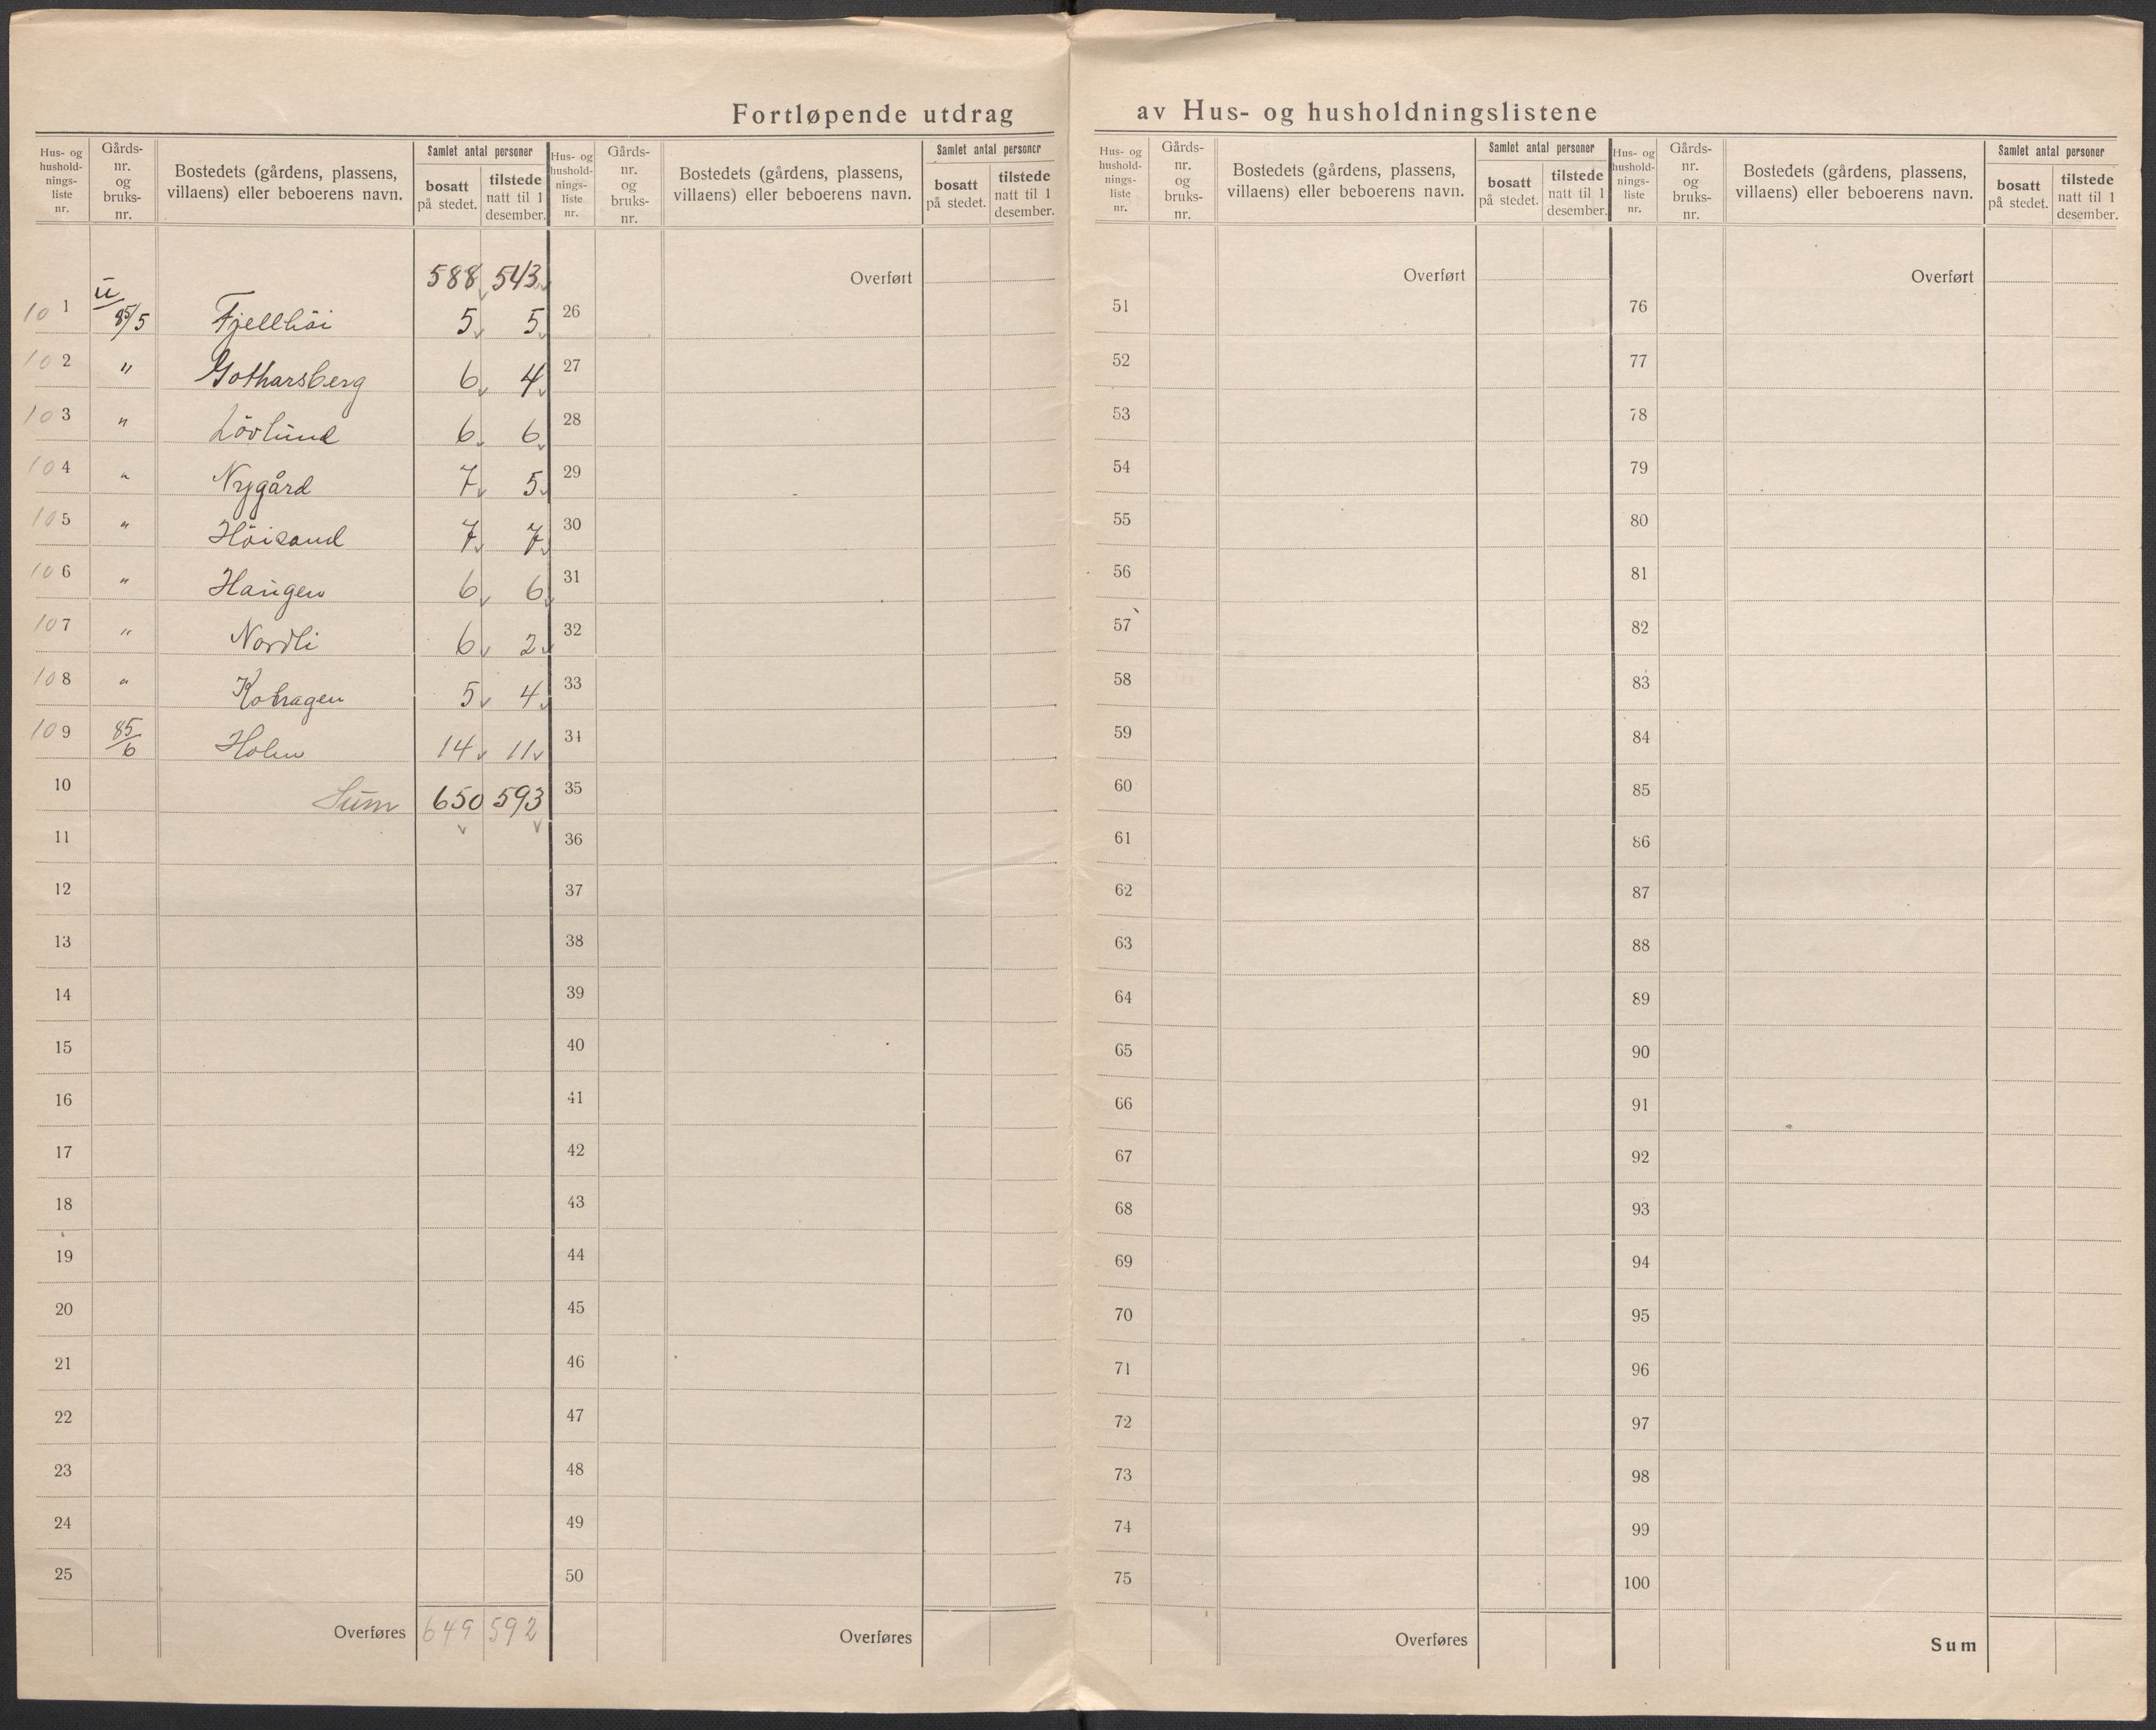 Fortløpende utdrag av Hus- og husholdningslistene
Hus- og hushold-nings-liste nr. | Gårds-nr. og bruks-nr. | Bostedets (gårdens, plassens, villaens) eller beboerens navn. | Samlet antal personer | bosatt på stedet. | tilstede natt til 1 desember.
Hus- og hushold-nings-liste nr. | Gårds-nr. og bruks-nr. | Bostedets (gårdens, plassens, villaens) eller beboerens navn. | Samlet antal personer | bosatt på stedet. | tilstede natt til 1 desember.
Hus- og hushold-nings-liste nr. | Gårds-nr. og bruks-nr. | Bostedets (gårdens, plassens, villaens) eller beboerens navn. | Samlet antal personer | bosatt på stedet. | tilstede natt til 1 desember.
Hus- og hushold-nings-liste nr. | Gårds-nr. og bruks-nr. | Bostedets (gårdens, plassens, villaens) eller beboerens navn. | Samlet antal personer | bosatt på stedet. | tilstede natt til 1 desember.
588 543
101 85/5 Fjellhöi 5 5
102 " Gotharsberg 6 4
103 " Lövlund 6 6
104 " Nygård 7 5
105 " Höisand 7 7
106 " Haugen 6 6
107 " Nordli 6 2
108 " 5 4
109 85/6 Holm 14 11
10 Sum 650 593
11
12
13
14
15
16
17
18
19
20
21
22
23
24
25
Overføres 649 592
Overført
26
27
28
29
30
31
32
33
34
35
36
37
38
39
40
41
42
43
44
45
46
47
48
49
50
Overføres
Overført
51
52
53
54
55
56
57
58
59
60
61
62
63
64
65
66
67
68
69
70
71
72
73
74
75
Overføres
Overført
76
77
78
79
80
81
82
83
84
85
86
87
88
89
90
91
92
93
94
95
96
97
98
99
100
Sum